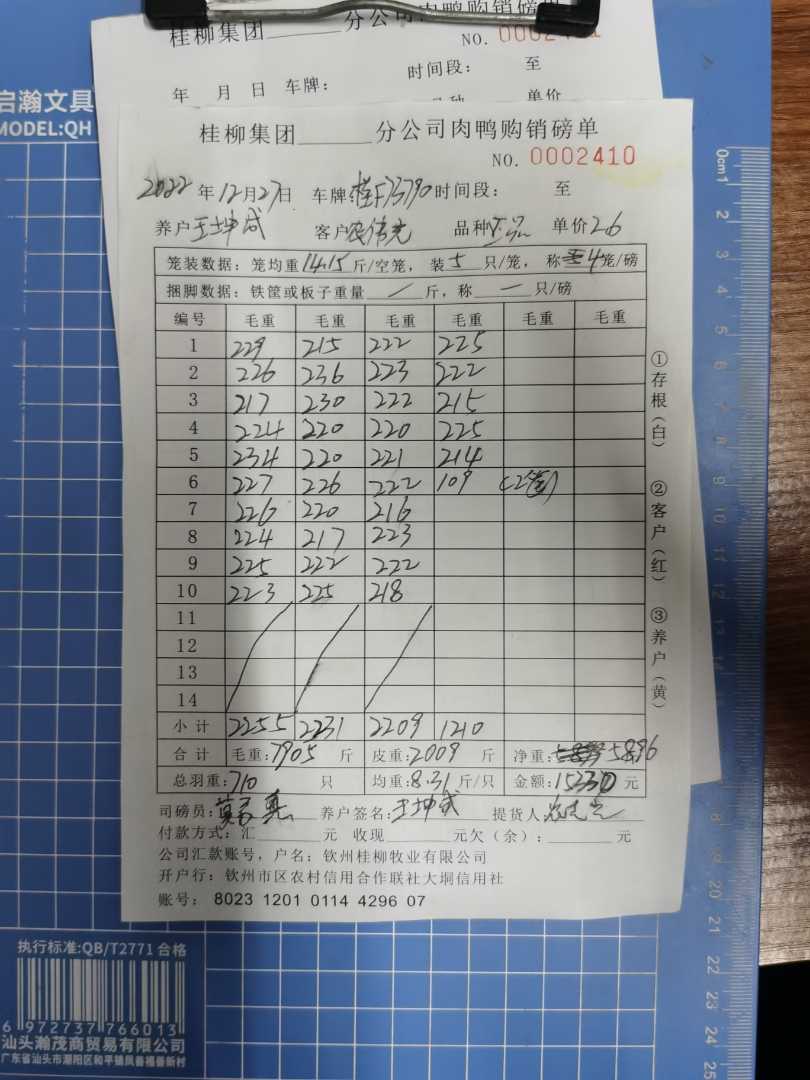 桂柳集团 分公司肉鸭购销磅单
NO.
时间段： 至
年 月 日 车牌：
单价
启瀚文具
MODEL:QH
桂柳集团 分公司肉鸭购销磅单
NO. 0002410
2022 年 12 月 27 日 车牌 桂F75790 时间段： 至
养户 王坤成 客户 农伟光 品种 正品 单价 2.6
笼装数据：笼均重 14.15 斤/空笼，装 5 只/笼，称 4 笼/磅
捆脚数据：铁筐或板子重量 / 斤，称 — 只/磅
编号 毛重 毛重 毛重 毛重 毛重 毛重
1 229 215 222 225
2 226 236 223 222
3 217 230 222 215
4 224 220 220 225
5 234 220 221 214
6 227 226 222 109 (2笼)
7 226 220 216
8 224 217 223
9 225 222 222
10 223 225 218
11
12
13
14
小计 2255 2231 2209 1210
合计 毛重：7905 斤 皮重：2009 斤 净重：5896
总羽重：710 只 均重：8.31 斤/只 金额：15330 元
司磅员： 养户签名：王坤成 提货人
付款方式：汇 元 收现 元欠（余）： 元
公司汇款账号，户名：钦州桂柳牧业有限公司
开户行：钦州市区农村信用合作联社大垌信用社
账号： 8023 1201 0114 4296 07
①存根（白） ②客户（红） ③养户（黄）
0cm1 2 3 4 5 6 7 8 9 10 11 12 20 21 22 23 24 25
执行标准:QB/T2771 合格
6 972737 766013
汕头瀚茂商贸有限公司
广东省汕头市潮阳区和平镇凤善福善新村